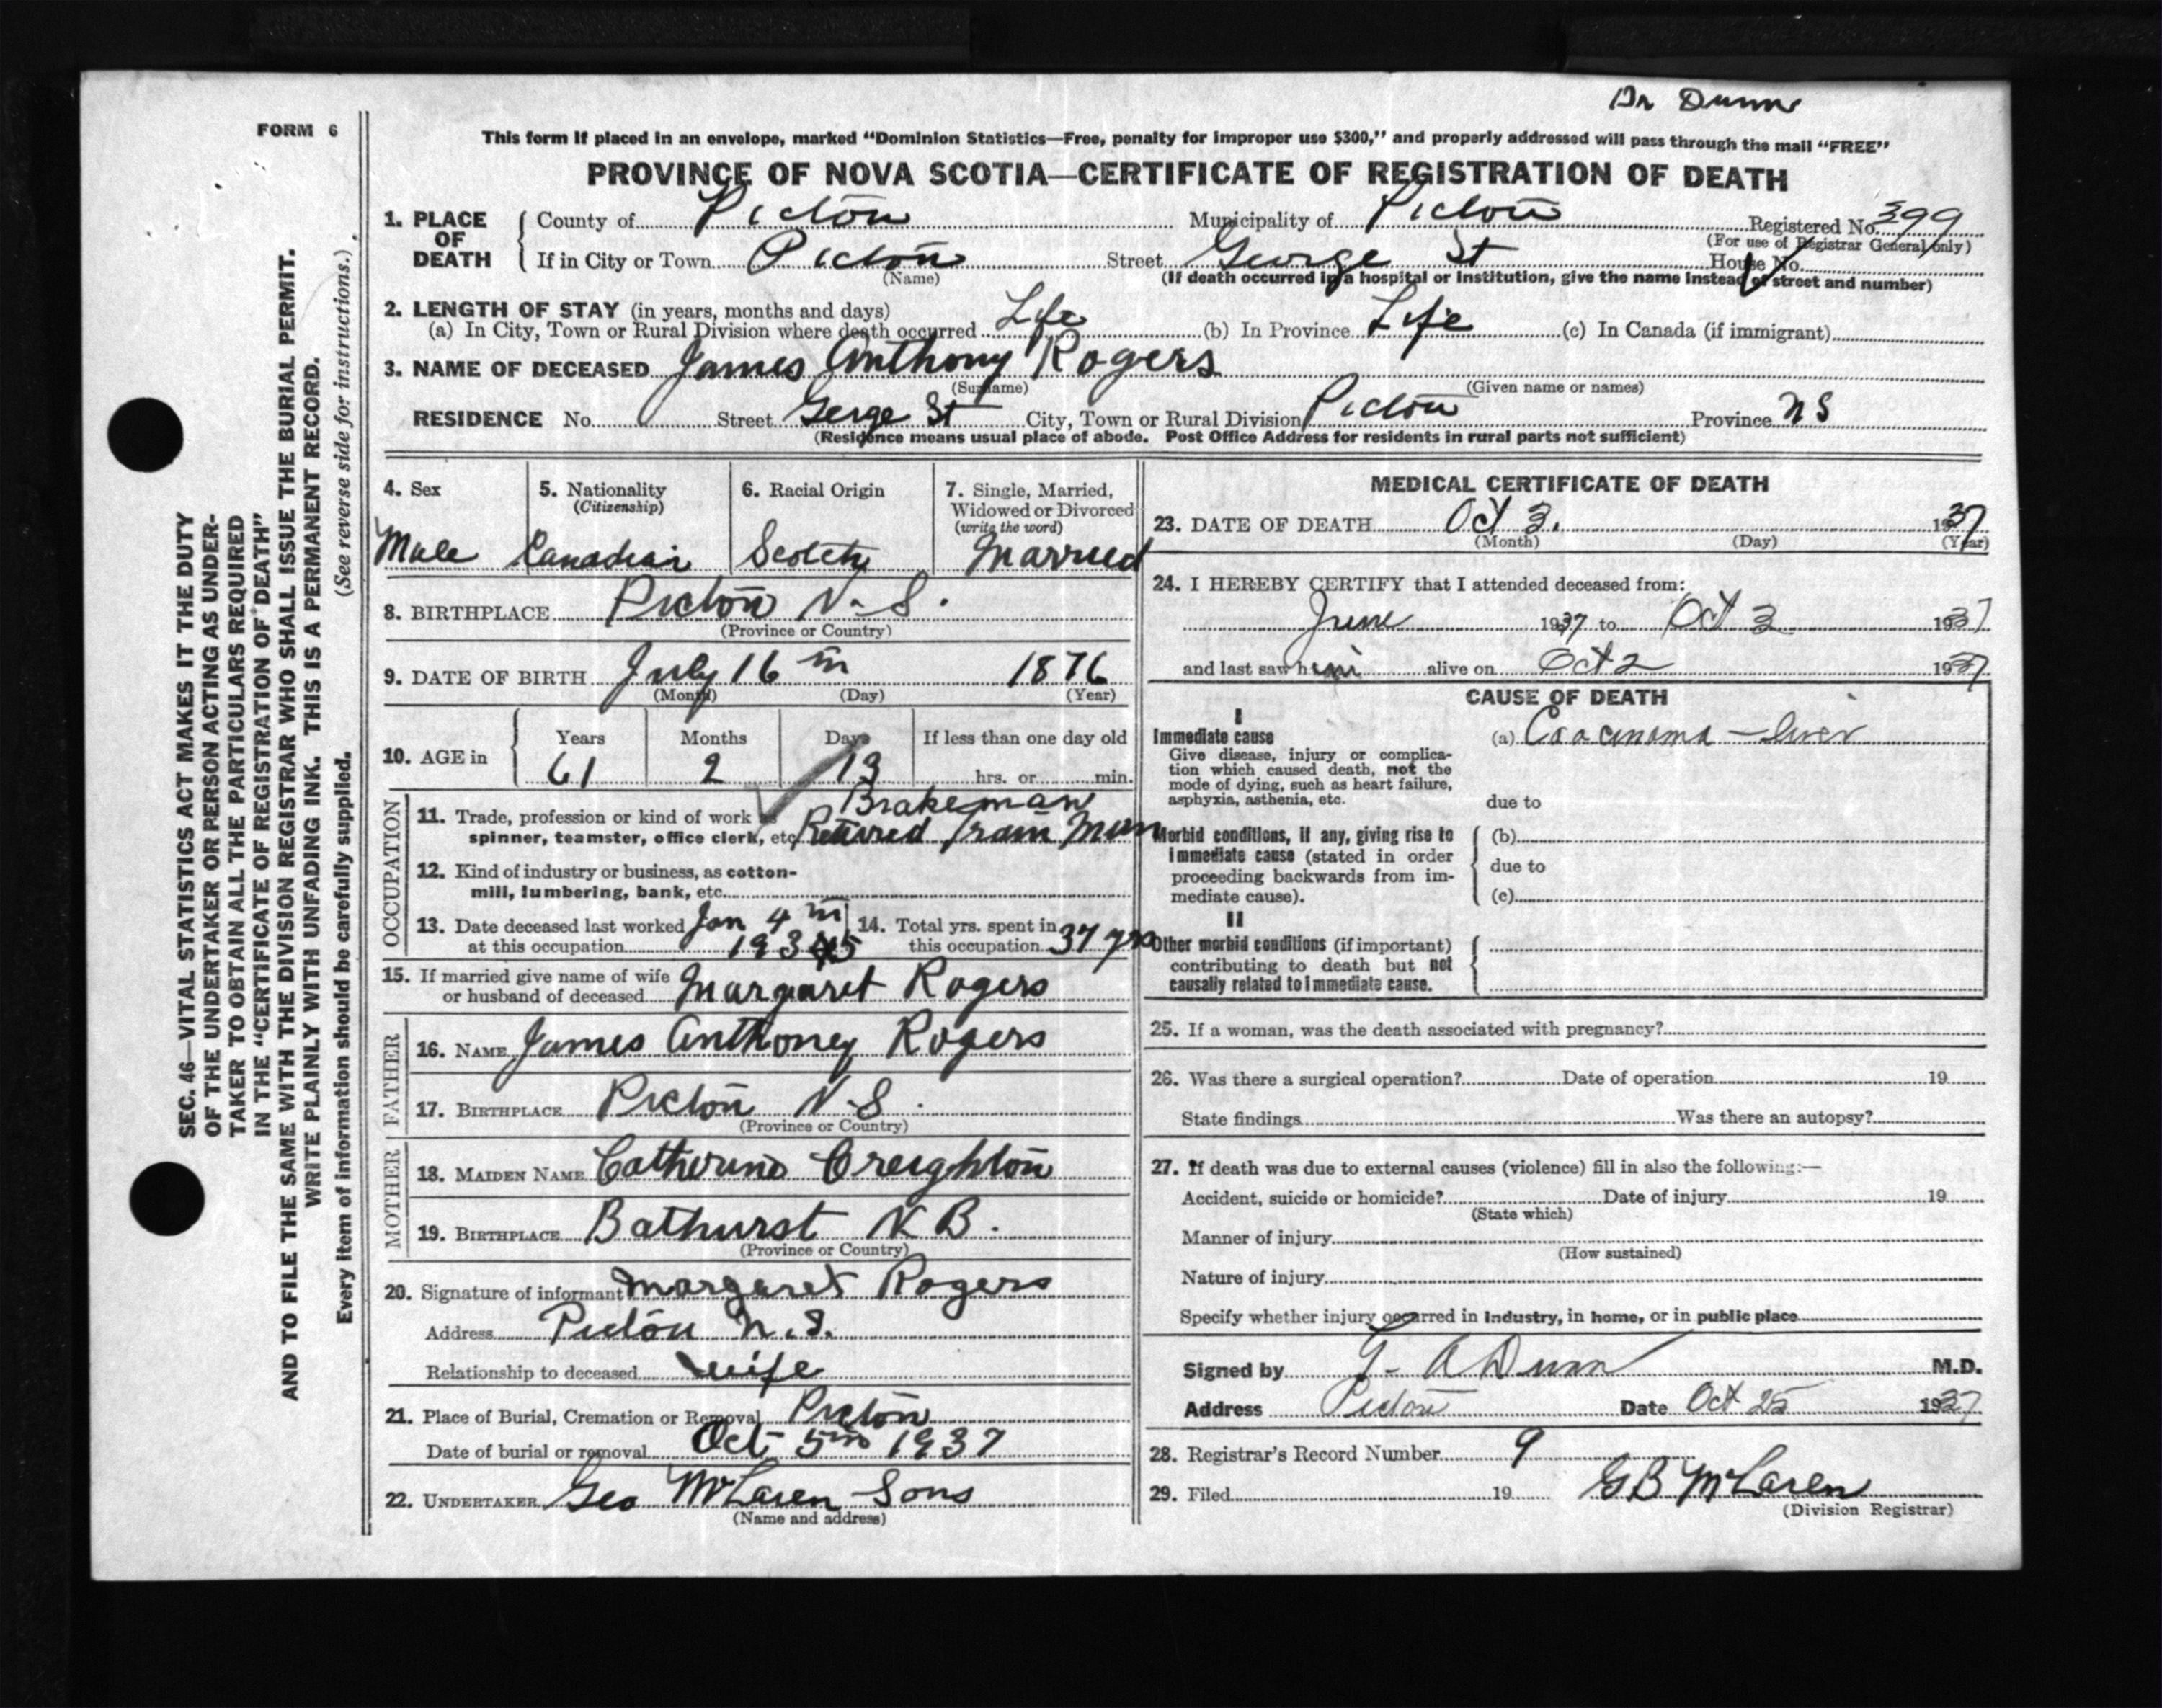 Dr Dunn
FORM 6
This form if placed in an envelope, marked “Dominion Statistics—Free, penalty for improper use $300,” and properly addressed will pass through the mail “FREE”
PROVINCE OF NOVA SCOTIA—CERTIFICATE OF REGISTRATION OF DEATH
1. PLACE OF DEATH County of Pictou Municipality of Pictou Registered No. 399
(For use of Registrar General only)
If in City or Town Pictou Street George St House No.
(Name) (If death occurred in a hospital or institution, give the name instead of street and number)
2. LENGTH OF STAY (in years, months and days)
(a) In City, Town or Rural Division where death occurred Life (b) In Province Life (c) In Canada (if immigrant)
3. NAME OF DECEASED James Anthony Rogers
(Surname) (Given name or names)
RESIDENCE No. Street Gerge St City, Town or Rural Division Pictou Province N S
(Residence means usual place of abode. Post Office Address for residents in rural parts not sufficient)
4. Sex 5. Nationality 6. Racial Origin 7. Single, Married,
(Citizenship) Widowed or Divorced
(write the word)
Male Canadian Scotch Married
8. BIRTHPLACE Pictou N.S.
(Province or Country)
9. DATE OF BIRTH July 16th 1876
(Month) (Day) (Year)
10. AGE in Years Months Days If less than one day old
61 2 13 hrs. or min.
OCCUPATION
11. Trade, profession or kind of work as Brakeman
spinner, teamster, office clerk, etc. Retired Train Man
12. Kind of industry or business, as cotton-
mill, lumbering, bank, etc.
13. Date deceased last worked Jan 4th 14. Total yrs. spent in
at this occupation 1935 this occupation 37 yrs
15. If married give name of wife
or husband of deceased Margaret Rogers
FATHER
16. NAME James Anthoney Rogers
17. BIRTHPLACE Pictou N.S.
(Province or Country)
MOTHER
18. MAIDEN NAME Catherine Creighton
19. BIRTHPLACE Bathurst N B.
(Province or Country)
20. Signature of informant Margaret Rogers
Address Pictou N.S.
Relationship to deceased wife
21. Place of Burial, Cremation or Removal Pictou
Date of burial or removal Oct 5th 1937
22. UNDERTAKER Geo McLaren Sons
(Name and address)
MEDICAL CERTIFICATE OF DEATH
23. DATE OF DEATH Oct 3. 1937
(Month) (Day) (Year)
24. I HEREBY CERTIFY that I attended deceased from:
June 1937 to Oct 3 1937
and last saw him alive on Oct 2 1937
CAUSE OF DEATH
I
Immediate cause (a) Carcinoma – Liver
Give disease, injury or complica-
tion which caused death, not the
mode of dying, such as heart failure,
asphyxia, asthenia, etc. due to
Morbid conditions, if any, giving rise to (b)
immediate cause (stated in order
proceeding backwards from im- due to
mediate cause). (c)
II
Other morbid conditions (if important)
contributing to death but not
causally related to immediate cause.
25. If a woman, was the death associated with pregnancy?
26. Was there a surgical operation? Date of operation 19
State findings Was there an autopsy?
27. If death was due to external causes (violence) fill in also the following:—
Accident, suicide or homicide? Date of injury 19
(State which)
Manner of injury
(How sustained)
Nature of injury
Specify whether injury occurred in industry, in home, or in public place
Signed by G. A Dunn M.D.
Address Pictou Date Oct 25 1937
28. Registrar's Record Number 9
29. Filed 19 G B McLaren
(Division Registrar)
SEC. 46—VITAL STATISTICS ACT MAKES IT THE DUTY
OF THE UNDERTAKER OR PERSON ACTING AS UNDER-
TAKER TO OBTAIN ALL THE PARTICULARS REQUIRED
IN THE “CERTIFICATE OF REGISTRATION OF DEATH”
AND TO FILE THE SAME WITH THE DIVISION REGISTRAR WHO SHALL ISSUE THE BURIAL PERMIT.
WRITE PLAINLY WITH UNFADING INK. THIS IS A PERMANENT RECORD.
Every item of information should be carefully supplied. (See reverse side for instructions.)